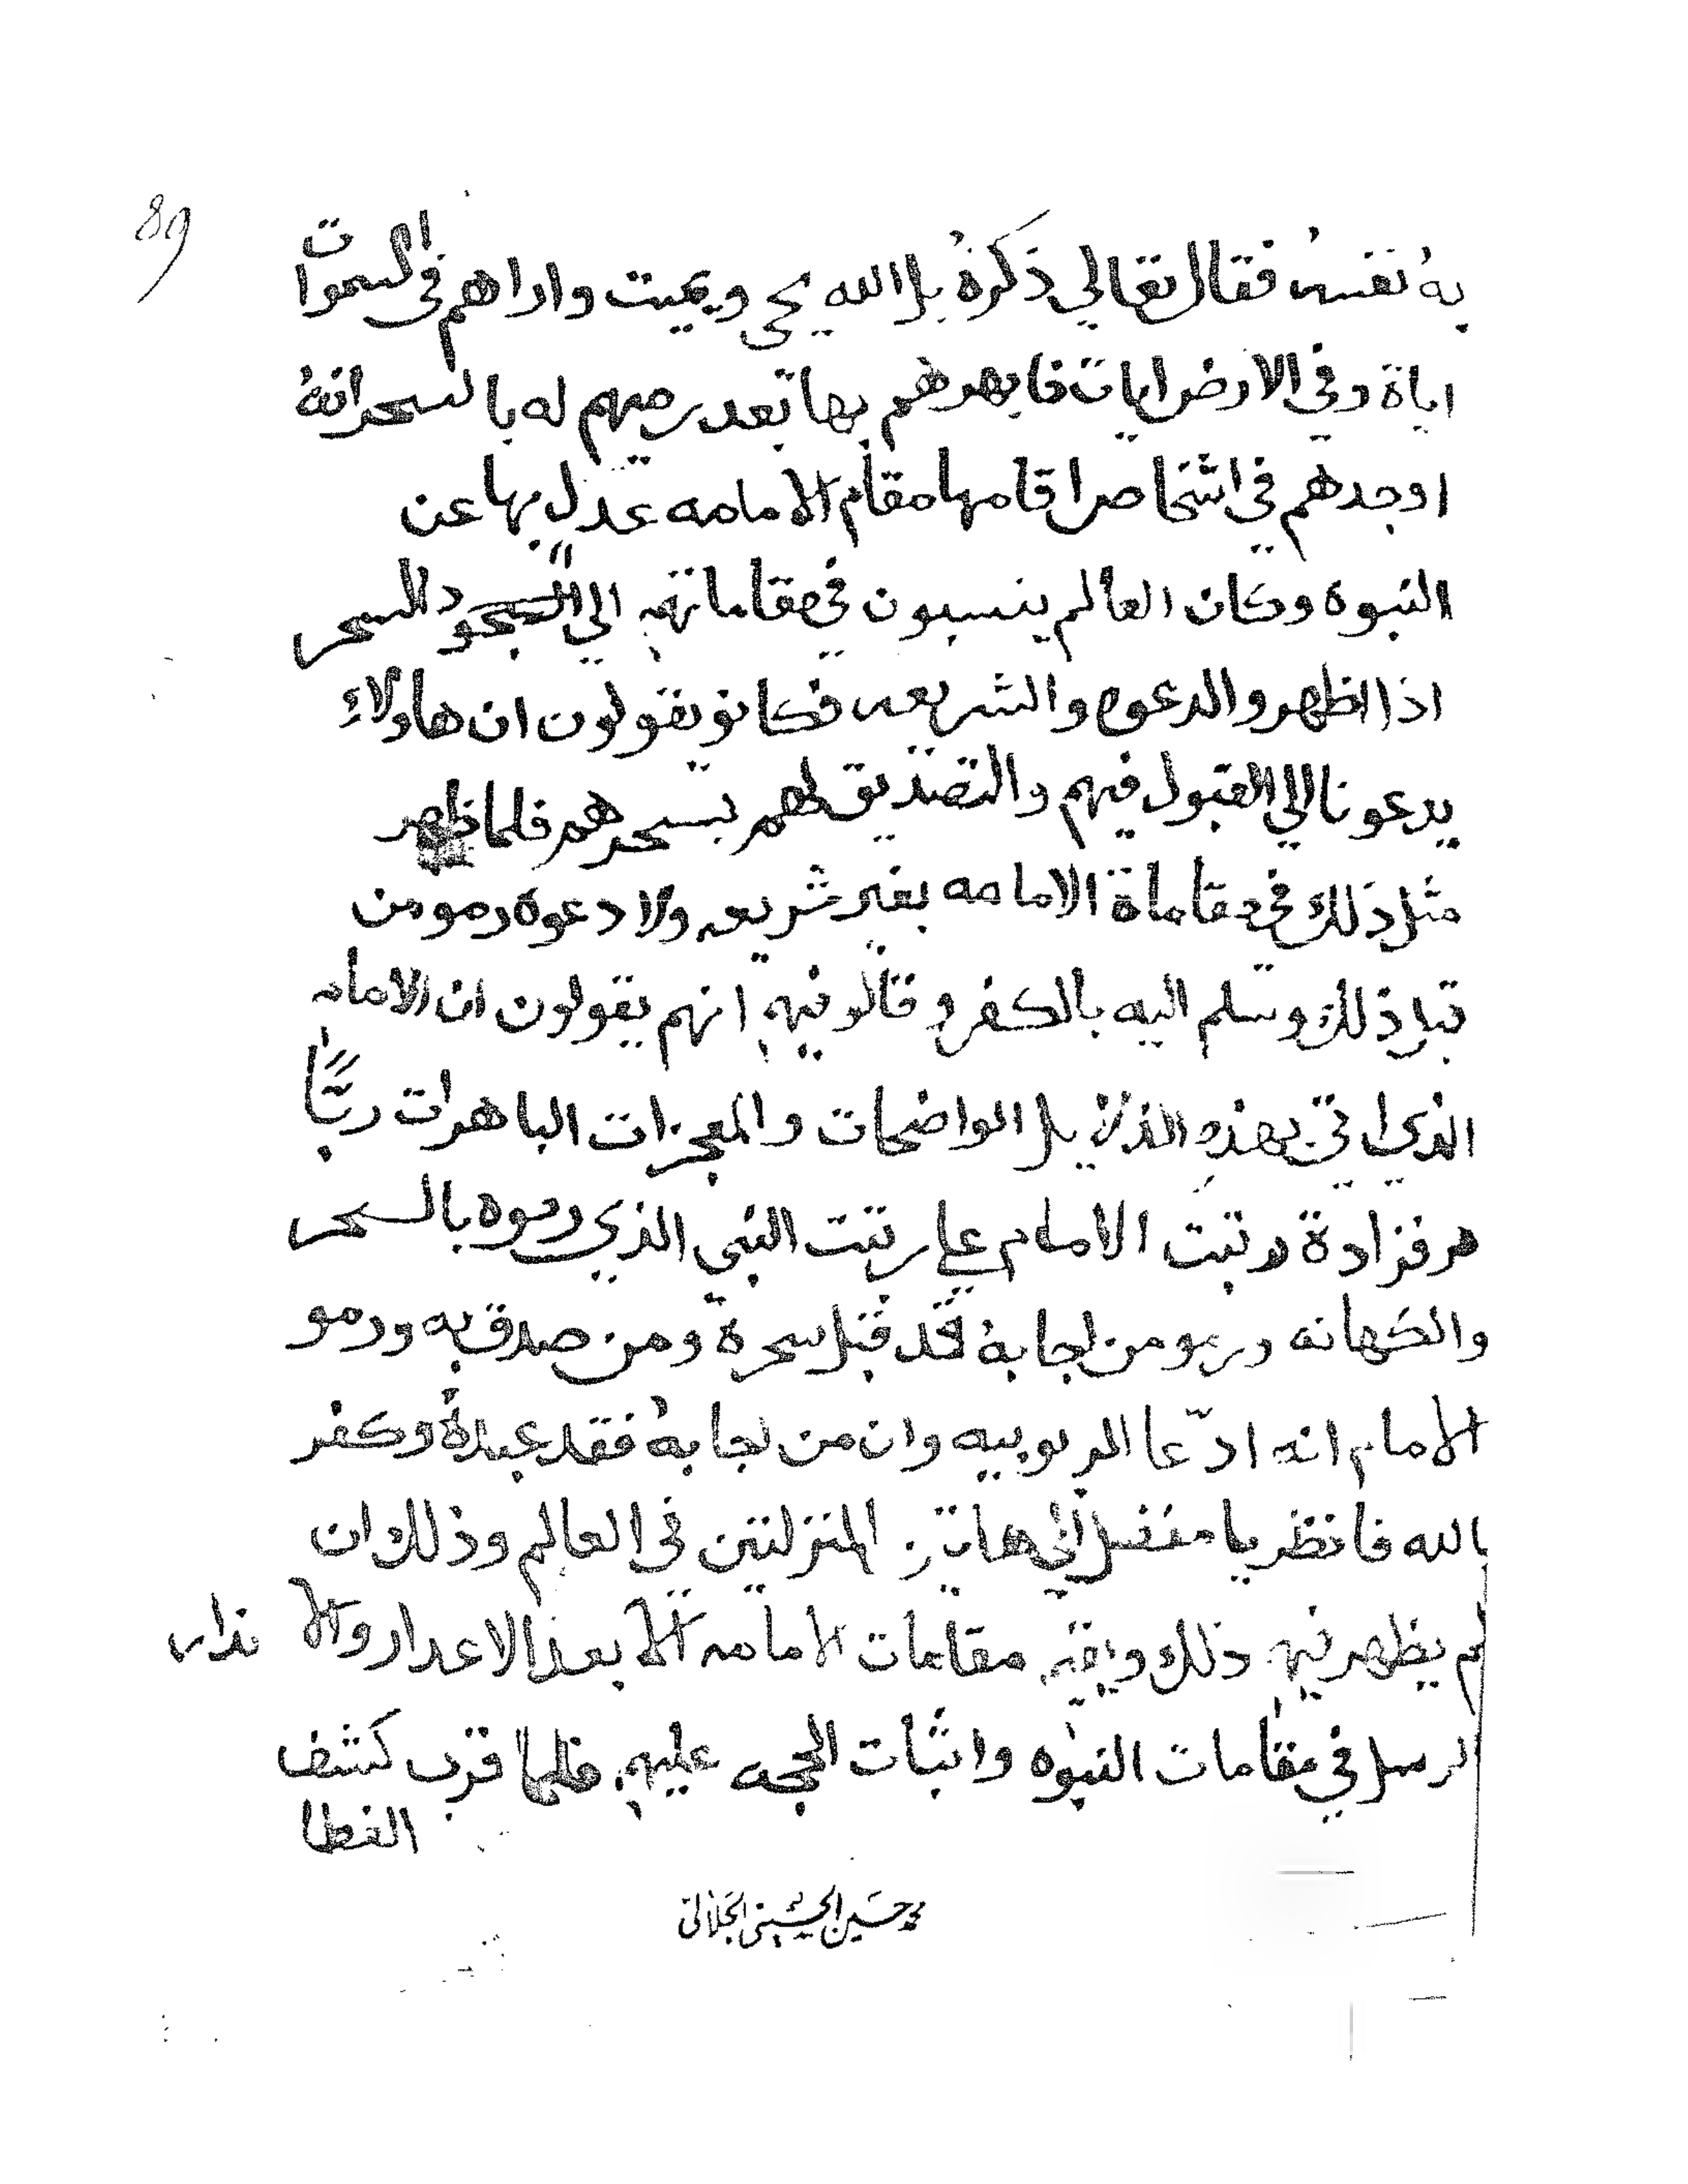 89
به نفسه فقال تعالي ذكره بل الله يحي ويميت واراهم في السموات
اياة وفي الارض ايات فابهرهم بها بعد رميهم له بالسحر انه
اوجدهم في اشخاص اقامها مقام الامامه عدل بها عن
النبوه وكان العالم ينسبون في مقاماتهم الي السحر
اذا اظهرو الدعوه والشريعه فكانو يقولون ان هاولاء
يدعونا الي القبول فيهم والتصديق لهم بسحرهم فلما ظهر
مثل ذلك في مقاماة الامامه بغير شريعه ولا دعوه رمو من
قبل ذلك وسلم اليه بالكفر وقالو فيهم انهم يقولون ان الامام
الذي اتي بهذه الدلايل الواضحات والمعجزات الباهرات ربًّا
هو فزادة رتبت الامام علي رتبت النبي الذي رموه بالسحر
والكهانه ورمو من اجابه قد قبل سحرة ومن صدق به ورمو
الامام انه ادّعا الربوبيه وان من اجابه فقد عبدهُ وكفر
بالله فانظر يا مفضل الي هاتين المنزلتين في العالم وذلك ان
لم يظهر فيهم ذلك مقامات الامامه الا بعد الاعدار والانذار
الرسل في مقامات النبوه واثبات الحجه عليهم فلما قرب كشف
الغطا
محمد حسين الحسيني الجلالي